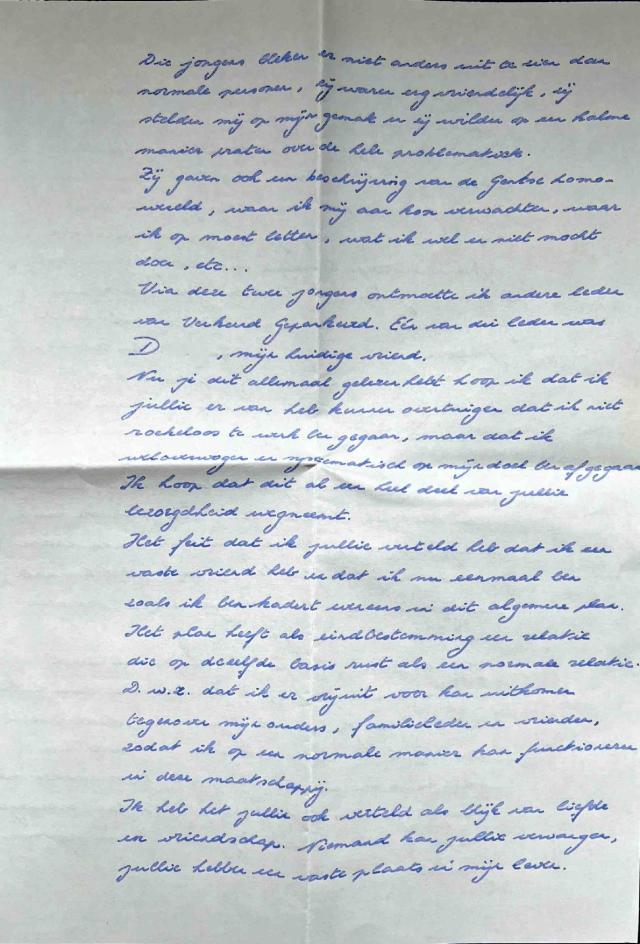 Die jongens bleken er niet anders uit te zien dan
normale personen, zij waren erg vriendelijk, zij
stelden mij op mijn gemak en zij wilden op een kalme
manier praten over de hele problematiek.
Zij gaven ook een beschrijving van de Gentse homo-
wereld, waar ik mij aan kon verwachten, waar
ik op moest letten, wat ik wel en niet mocht
doen, etc...
Via deze twee jongens ontmoette ik andere leden
van Verkeerd Geparkeerd. Eén van die leden was
D , mijn huidige vriend.
Nu je dit allemaal gelezen hebt hoop ik dat ik
jullie er van heb kunnen overtuigen dat ik niet
roekeloos te werk ben gegaan, maar dat ik
weloverwogen en systematisch op mijn doel ben afgegaan.
Ik hoop dat dit al een heel deel van jullie
bezorgdheid wegneemt.
Het feit dat ik jullie verteld heb dat ik een
vaste vriend heb en dat ik nu eenmaal ben
zoals ik ben kadert eveneens in dit algemene plan.
Het plan heeft als eindbestemming een relatie
die op dezelfde basis rust als een normale relatie.
D.w.z. dat ik er vrijuit voor kan uitkomen
tegenover mijn ouders, familieleden en vrienden,
zodat ik op een normale manier kan functioneren
in deze maatschappij.
Ik heb het jullie ook verteld als blijk van liefde
en vriendschap. Niemand kan jullie vervangen,
jullie hebben een vaste plaats in mijn leven.